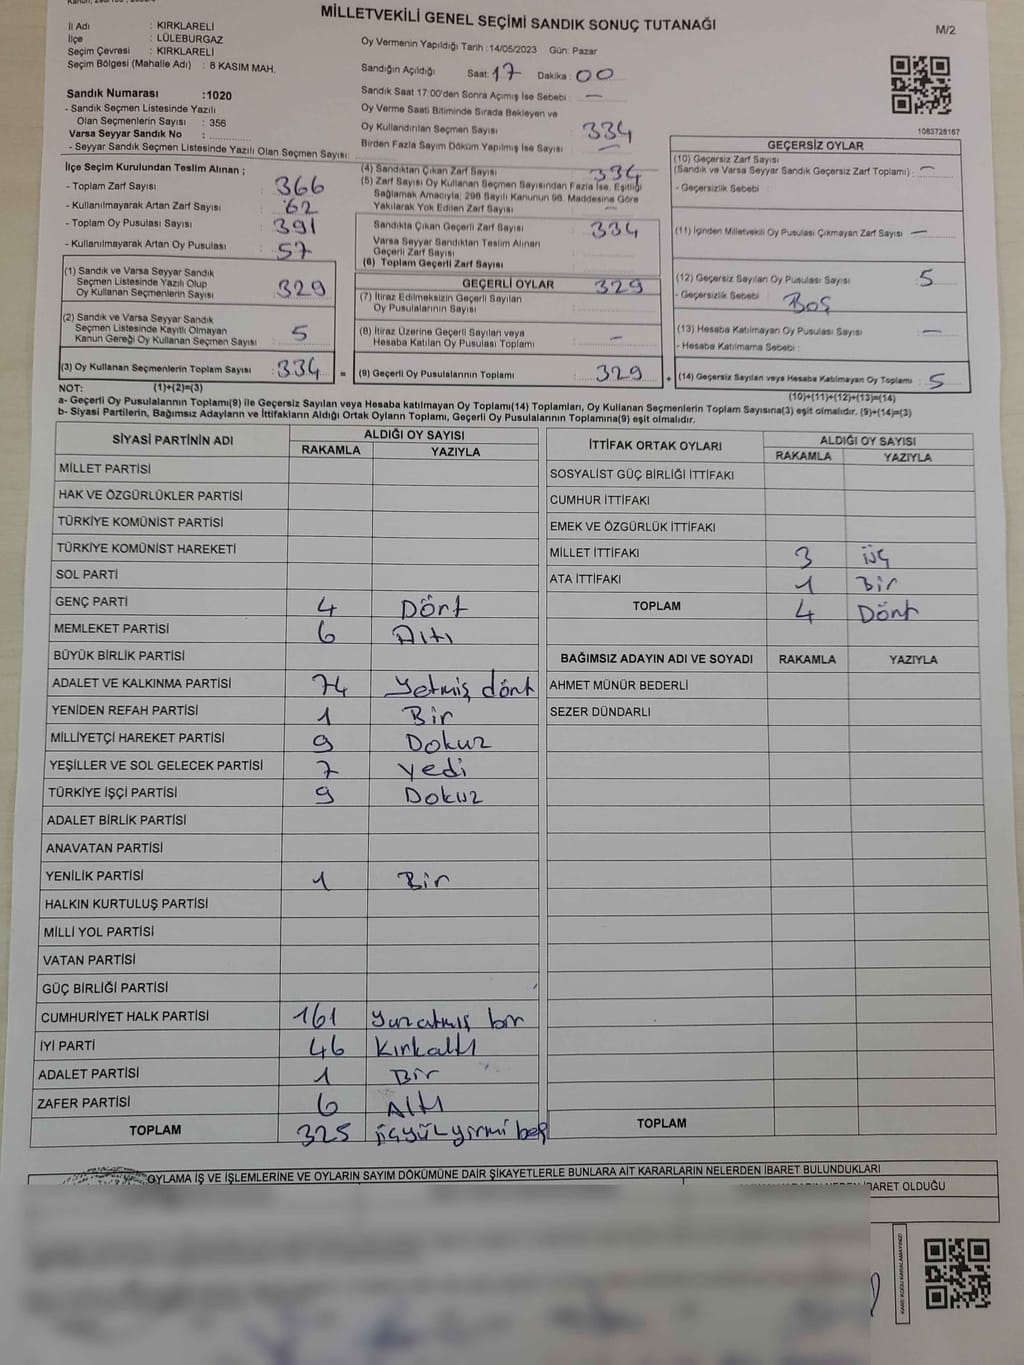 MİLLETVEKİLİ GENEL SEÇİMİ SANDIK SONUÇ TUTANAĞI
M/2
İl Adı : KIRKLARELİ
İlçe : LÜLEBURGAZ
Seçim Çevresi : KIRKLARELİ
Seçim Bölgesi (Mahalle Adı) : 8 KASIM MAH.
Sandık Numarası :1020
- Sandık Seçmen Listesinde Yazılı
Olan Seçmenlerin Sayısı : 356
Varsa Seyyar Sandık No :
- Seyyar Sandık Seçmen Listesinde Yazılı Olan Seçmen Sayısı:
Oy Vermenin Yapıldığı Tarih :14/05/2023 Gün: Pazar
Sandığın Açıldığı Saat: 17 Dakika : 00
Sandık Saat 17:00'den Sonra Açımış İse Sebebi : —
Oy Verme Saati Bitiminde Sırada Bekleyen ve
Oy Kullandırılan Seçmen Sayısı 334
Birden Fazla Sayım Döküm Yapılmış İse Sayısı : —
1083728167
İlçe Seçim Kurulundan Teslim Alınan ;
- Toplam Zarf Sayısı : 366
- Kullanılmayarak Artan Zarf Sayısı : 62
- Toplam Oy Pusulası Sayısı : 391
- Kullanılmayarak Artan Oy Pusulası : 57
(1) Sandık ve Varsa Seyyar Sandık
Seçmen Listesinde Yazılı Olup
Oy Kullanan Seçmenlerin Sayısı : 329
(2) Sandık ve Varsa Seyyar Sandık
Seçmen Listesinde Kayıtlı Olmayan
Kanun Gereği Oy Kullanan Seçmen Sayısı : 5
(3) Oy Kullanan Seçmenlerin Toplam Sayısı : 334 =
(4) Sandıktan Çıkan Zarf Sayısı : 334
(5) Zarf Sayısı Oy Kullanan Seçmen Sayısından Fazla İse, Eşitliği
Sağlamak Amacıyla, 298 Sayılı Kanunun 98. Maddesine Göre
Yakılarak Yok Edilen Zarf Sayısı : —
Sandıkta Çıkan Geçerli Zarf Sayısı : 334
Varsa Seyyar Sandıktan Teslim Alınan
Geçerli Zarf Sayısı :
(6) Toplam Geçerli Zarf Sayısı :
GEÇERLİ OYLAR
(7) İtiraz Edilmeksizin Geçerli Sayılan 329
Oy Pusulalarının Sayısı :
(8) İtiraz Üzerine Geçerli Sayılan veya
Hesaba Katılan Oy Pusulası Toplamı : —
(9) Geçerli Oy Pusulalarının Toplamı : 329 +
GEÇERSİZ OYLAR
(10) Geçersiz Zarf Sayısı
(Sandık ve Varsa Seyyar Sandık Geçersiz Zarf Toplamı) : —
- Geçersizlik Sebebi :
(11) İçinden Milletvekili Oy Pusulası Çıkmayan Zarf Sayısı : —
(12) Geçersiz Sayılan Oy Pusulası Sayısı : 5
- Geçersizlik Sebebi : Boş
(13) Hesaba Katılmayan Oy Pusulası Sayısı : —
- Hesaba Katılmama Sebebi :
(14) Geçersiz Sayılan veya Hesaba Katılmayan Oy Toplamı : 5
NOT: (1)+(2)=(3) (10)+(11)+(12)+(13)=(14)
a- Geçerli Oy Pusulalarının Toplamı(9) ile Geçersiz Sayılan veya Hesaba katılmayan Oy Toplamı(14) Toplamları, Oy Kullanan Seçmenlerin Toplam Sayısına(3) eşit olmalıdır. (9)+(14)=(3)
b- Siyasi Partilerin, Bağımsız Adayların ve İttifakların Aldığı Ortak Oyların Toplamı, Geçerli Oy Pusulalarının Toplamına(9) eşit olmalıdır.
SİYASİ PARTİNİN ADI ALDIĞI OY SAYISI
RAKAMLA YAZIYLA
MİLLET PARTİSİ
HAK VE ÖZGÜRLÜKLER PARTİSİ
TÜRKİYE KOMÜNİST PARTİSİ
TÜRKİYE KOMÜNİST HAREKETİ
SOL PARTİ
GENÇ PARTİ 4 Dört
MEMLEKET PARTİSİ 6 Altı
BÜYÜK BİRLİK PARTİSİ
ADALET VE KALKINMA PARTİSİ 74 Yetmiş dört
YENİDEN REFAH PARTİSİ 1 Bir
MİLLİYETÇİ HAREKET PARTİSİ 9 Dokuz
YEŞİLLER VE SOL GELECEK PARTİSİ 7 yedi
TÜRKİYE İŞÇİ PARTİSİ 9 Dokuz
ADALET BİRLİK PARTİSİ
ANAVATAN PARTİSİ
YENİLİK PARTİSİ 1 Bir
HALKIN KURTULUŞ PARTİSİ
MİLLİ YOL PARTİSİ
VATAN PARTİSİ
GÜÇ BİRLİĞİ PARTİSİ
CUMHURİYET HALK PARTİSİ 161 Yüzatmış bir
İYİ PARTİ 46 Kırkaltı
ADALET PARTİSİ 1 Bir
ZAFER PARTİSİ 6 Altı
TOPLAM 325 üçyüzyirmi beş
İTTİFAK ORTAK OYLARI ALDIĞI OY SAYISI
RAKAMLA YAZIYLA
SOSYALİST GÜÇ BİRLİĞİ İTTİFAKI
CUMHUR İTTİFAKI
EMEK VE ÖZGÜRLÜK İTTİFAKI
MİLLET İTTİFAKI 3 üç
ATA İTTİFAKI 1 Bir
TOPLAM 4 Dört
BAĞIMSIZ ADAYIN ADI VE SOYADI RAKAMLA YAZIYLA
AHMET MÜNÜR BEDERLİ
SEZER DÜNDARLI
TOPLAM
OYLAMA İŞ VE İŞLEMLERİNE VE OYLARIN SAYIM DÖKÜMÜNE DAİR ŞİKAYETLERLE BUNLARA AİT KARARLARIN NELERDEN İBARET BULUNDUKLARI
İBARET OLDUĞU